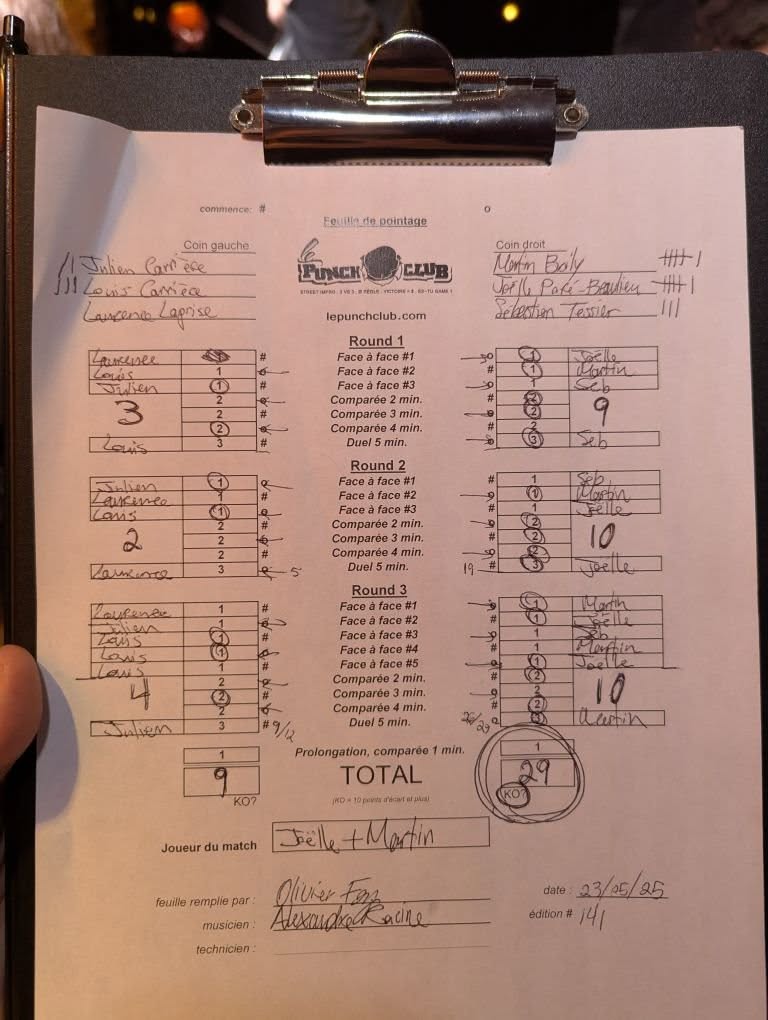 commence: # o
Feuille de pointage
Coin gauche Coin droit
II Julien Carrière
III Louis Carrière
Laurence Laprise
Martin Boily IIII I
Joëlle Paré-Beaulieu IIII I
Sébastien Tessier III
le PUNCH CLUB
lepunchclub.com
Round 1
Laurence # Face à face #1 1 Joëlle
Louis 1 Face à face #2 # 1 Martin
Julien 1 # Face à face #3 1 Seb
2 Comparée 2 min. # 2
3 2 # Comparée 3 min. 2 9
2 Comparée 4 min. # 2
Louis 3 # Duel 5 min. 3 Seb
Round 2
Julien 1 Face à face #1 # 1 Seb
Laurence 1 # Face à face #2 1 Martin
Louis 1 Face à face #3 # 1 Joëlle
2 # Comparée 2 min. 2
2 2 Comparée 3 min. # 2 10
2 # Comparée 4 min. 2
Laurence 3 5 Duel 5 min. 19 # 3 Joëlle
Round 3
Laurence 1 # Face à face #1 1 Martin
Julien 1 Face à face #2 # 1 Joëlle
Louis 1 # Face à face #3 1 Seb
Louis 1 Face à face #4 # 1 Martin
Louis 1 # Face à face #5 1 Joëlle
2 Comparée 2 min. # 2
4 2 # Comparée 3 min. 2 10
2 Comparée 4 min. # 2
Julien 3 # 9/12 Duel 5 min. 26/29 3 Martin
1 Prolongation, comparée 1 min. 1
9 TOTAL 29
KO? (KO = 10 points d'écart et plus) KO?
Joueur du match Joëlle + Martin
feuille remplie par : Olivier date : 23/05/25
musicien : Alexandre Racine édition # 141
technicien :